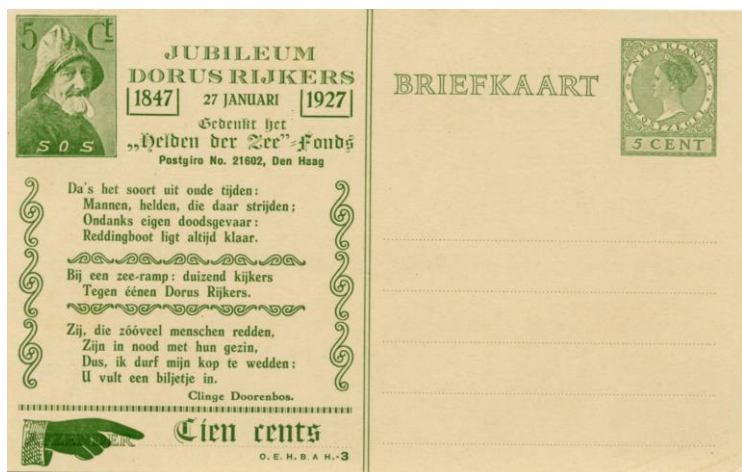 5 Ct
SOS
JUBILEUM
DORUS RIJKERS
1847 27 JANUARI 1927
Gedenkt het
„Helden der Zee”-Fonds
Postgiro No. 21602, Den Haag
Da's het soort uit oude tijden:
Mannen, helden, die daar strijden;
Ondanks eigen doodsgevaar:
Reddingboot ligt altijd klaar.
Bij een zee-ramp: duizend kijkers
Tegen éénen Dorus Rijkers.
Zij, die zóóveel menschen redden,
Zijn in nood met hun gezin,
Dus, ik durf mijn kop te wedden:
U vult een biljetje in.
Clinge Doorenbos.
AFZENDER
Tien cents
O. E. H. B. A H.-3
BRIEFKAART
NEDERLAND
POSTZEGEL
5 CENT